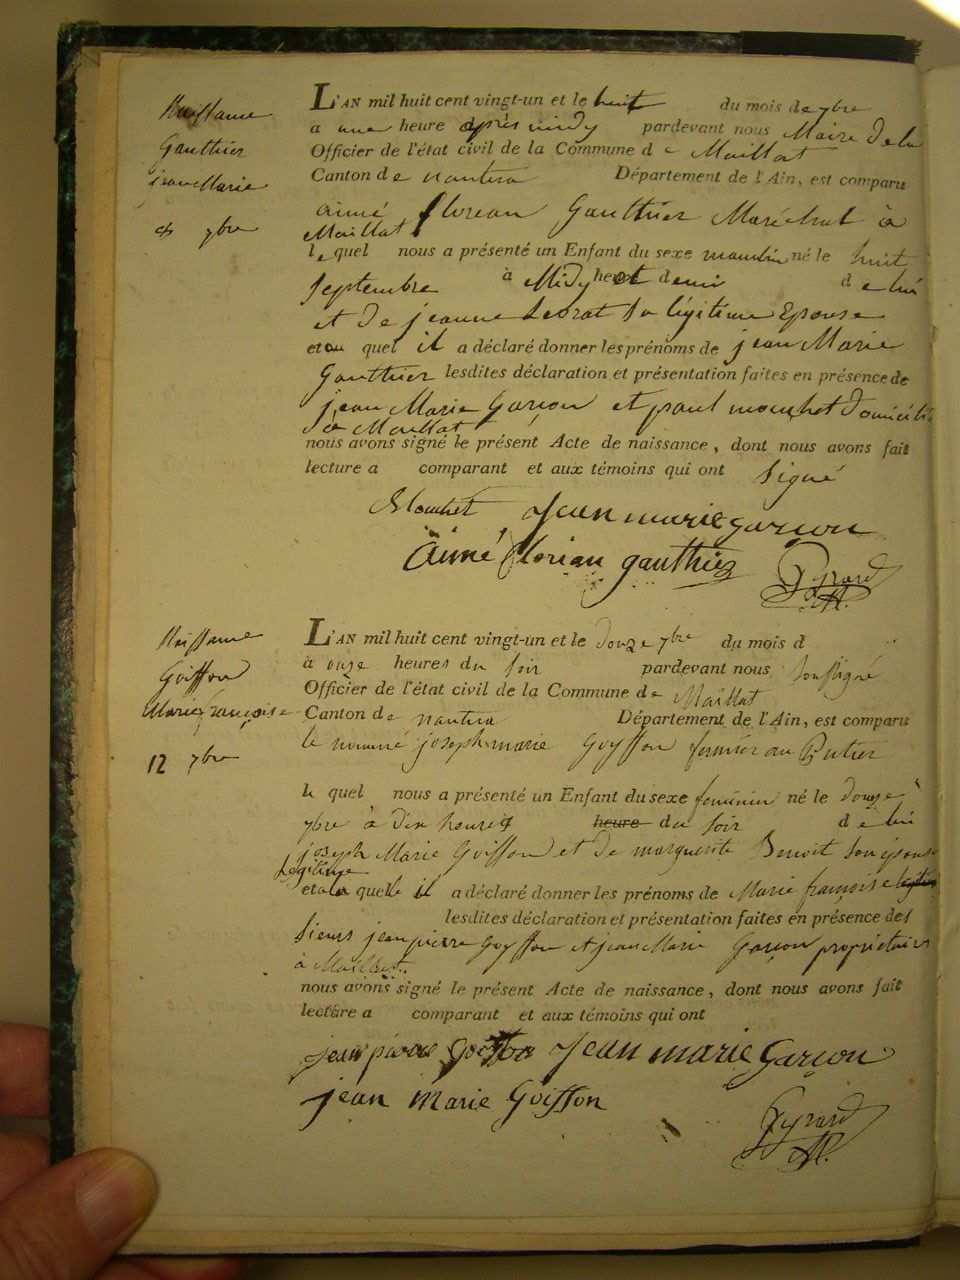 Naissance
Gauthier
jean Marie
8 7bre
L'AN mil huit cent vingt-un et le huit du mois de 7bre
a une heure après midy pardevant nous Maire de la
Officier de l'état civil de la Commune de Maillat
Canton de nantua Département de l'Ain, est comparu
aimé florian Gauthier Maréchal à
Maillat
lequel nous a présenté un Enfant du sexe masculin né le huit
Septembre à Midy et demi de lui
et de jeanne Sa légitime Epouse
et auquel il a déclaré donner les prénoms de jean Marie
Gauthier lesdites déclaration et présentation faites en présence de
jean Marie Garçon et paul mouchet Domiciliés
à Maillat
nous avons signé le présent Acte de naissance, dont nous avons fait
lecture a comparant et aux témoins qui ont Signé
Mouchet Jean marie garcon
aimé florian gauthier Pyrard
Naissance
Goiffon
Marie françoise
12 7bre
L'AN mil huit cent vingt-un et le Douze 7bre du mois d
à onze heures du soir pardevant nous soussigné
Officier de l'état civil de la Commune de Maillat
Canton de nantua Département de l'Ain, est comparu
le nommé joseph marie Goyffon fermier au
le quel nous a présenté un Enfant du sexe feminin né le douze
7bre à dix heures heure du soir de lui
joseph Marie Goiffon et de marguerite Benoit son epouse
Légitime
et a laquelle il a déclaré donner les prénoms de Marie françoise
lesdites déclaration et présentation faites en présence des
sieurs jean pierre Goyffon et jean Marie Garçon proprietaires
à Maillat.
nous avons signé le présent Acte de naissance, dont nous avons fait
lecture a comparant et aux témoins qui ont
jean pierre goiffon Jean marie Garcon
jean Marie Goiffon
Pyrard